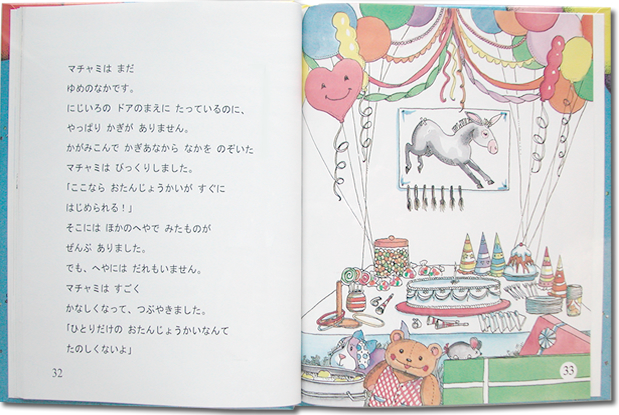 マチャミは まだ
ゆめのなかです。
にじいろの ドアのまえに たっているのに、
やっぱり かぎが ありません。
かがみこんで かぎあなから なかを のぞいた
マチャミは びっくりしました。
「ここなら おたんじょうかいが すぐに
はじめられる！」
そこには ほかのへやで みたものが
ぜんぶ ありました。
でも、へやには だれもいません。
マチャミは すごく
かなしくなって、つぶやきました。
「ひとりだけの おたんじょうかいなんて
たのしくないよ」
32
33